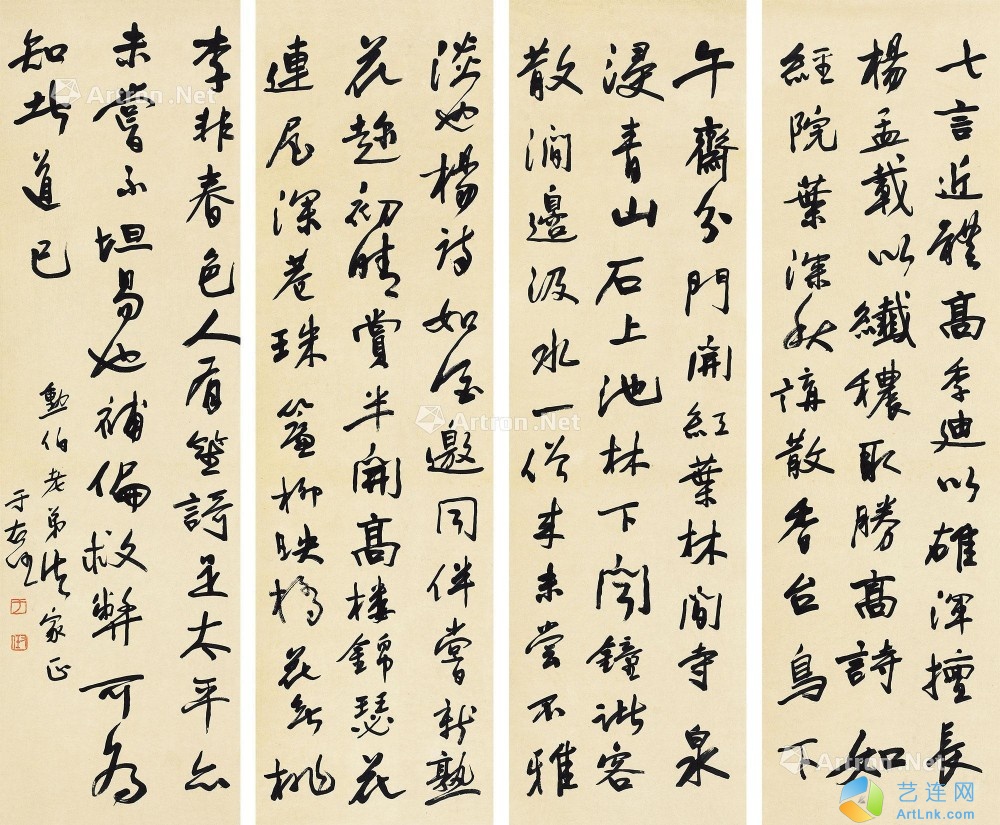 七言近體高季迪以雄渾擅長
楊孟載以纖穠取勝高詩如
經院葉深秋講散香台鳥下
午齋分門開紅葉林間寺泉
浸青山石上池林下聞鐘諧客
散澗邊汲水一僧來未嘗不雅
淡也楊詩如酒邀同伴嘗新熟
花趁初晴賞半開高樓錦瑟花
連屋深巷珠簾柳映橋花無桃
李非春色人有笙謌是太平亦
未嘗不坦易也補偏救弊可為
知此道已
勳伯老弟法家正
于右任
Artron.Net
Artron.Net
Artron.Net
Artron.Net
艺连网
ArtLnk.com